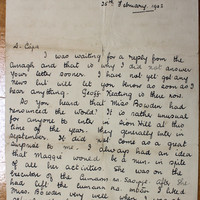 26th February, 1903
I was waiting for a reply from the
and that is why I did not answer
your letter sooner. I have not yet got any
news but will let you know as soon as I
hear anything. Geoff Keating is there now.
Do you heard that Miss Bowden had
renounced the world? It is rather unusual
for anyone to in Sion Hill at this
time of the year. They generally enter in
September. It did not come as a great
surprise to me. I always had an idea
that Maggie would be a nun, in spite
of all her activities. She was on the
Executive of the Cumann na after she
had left the Cumann na I liked
Miss Bowden very well when I was